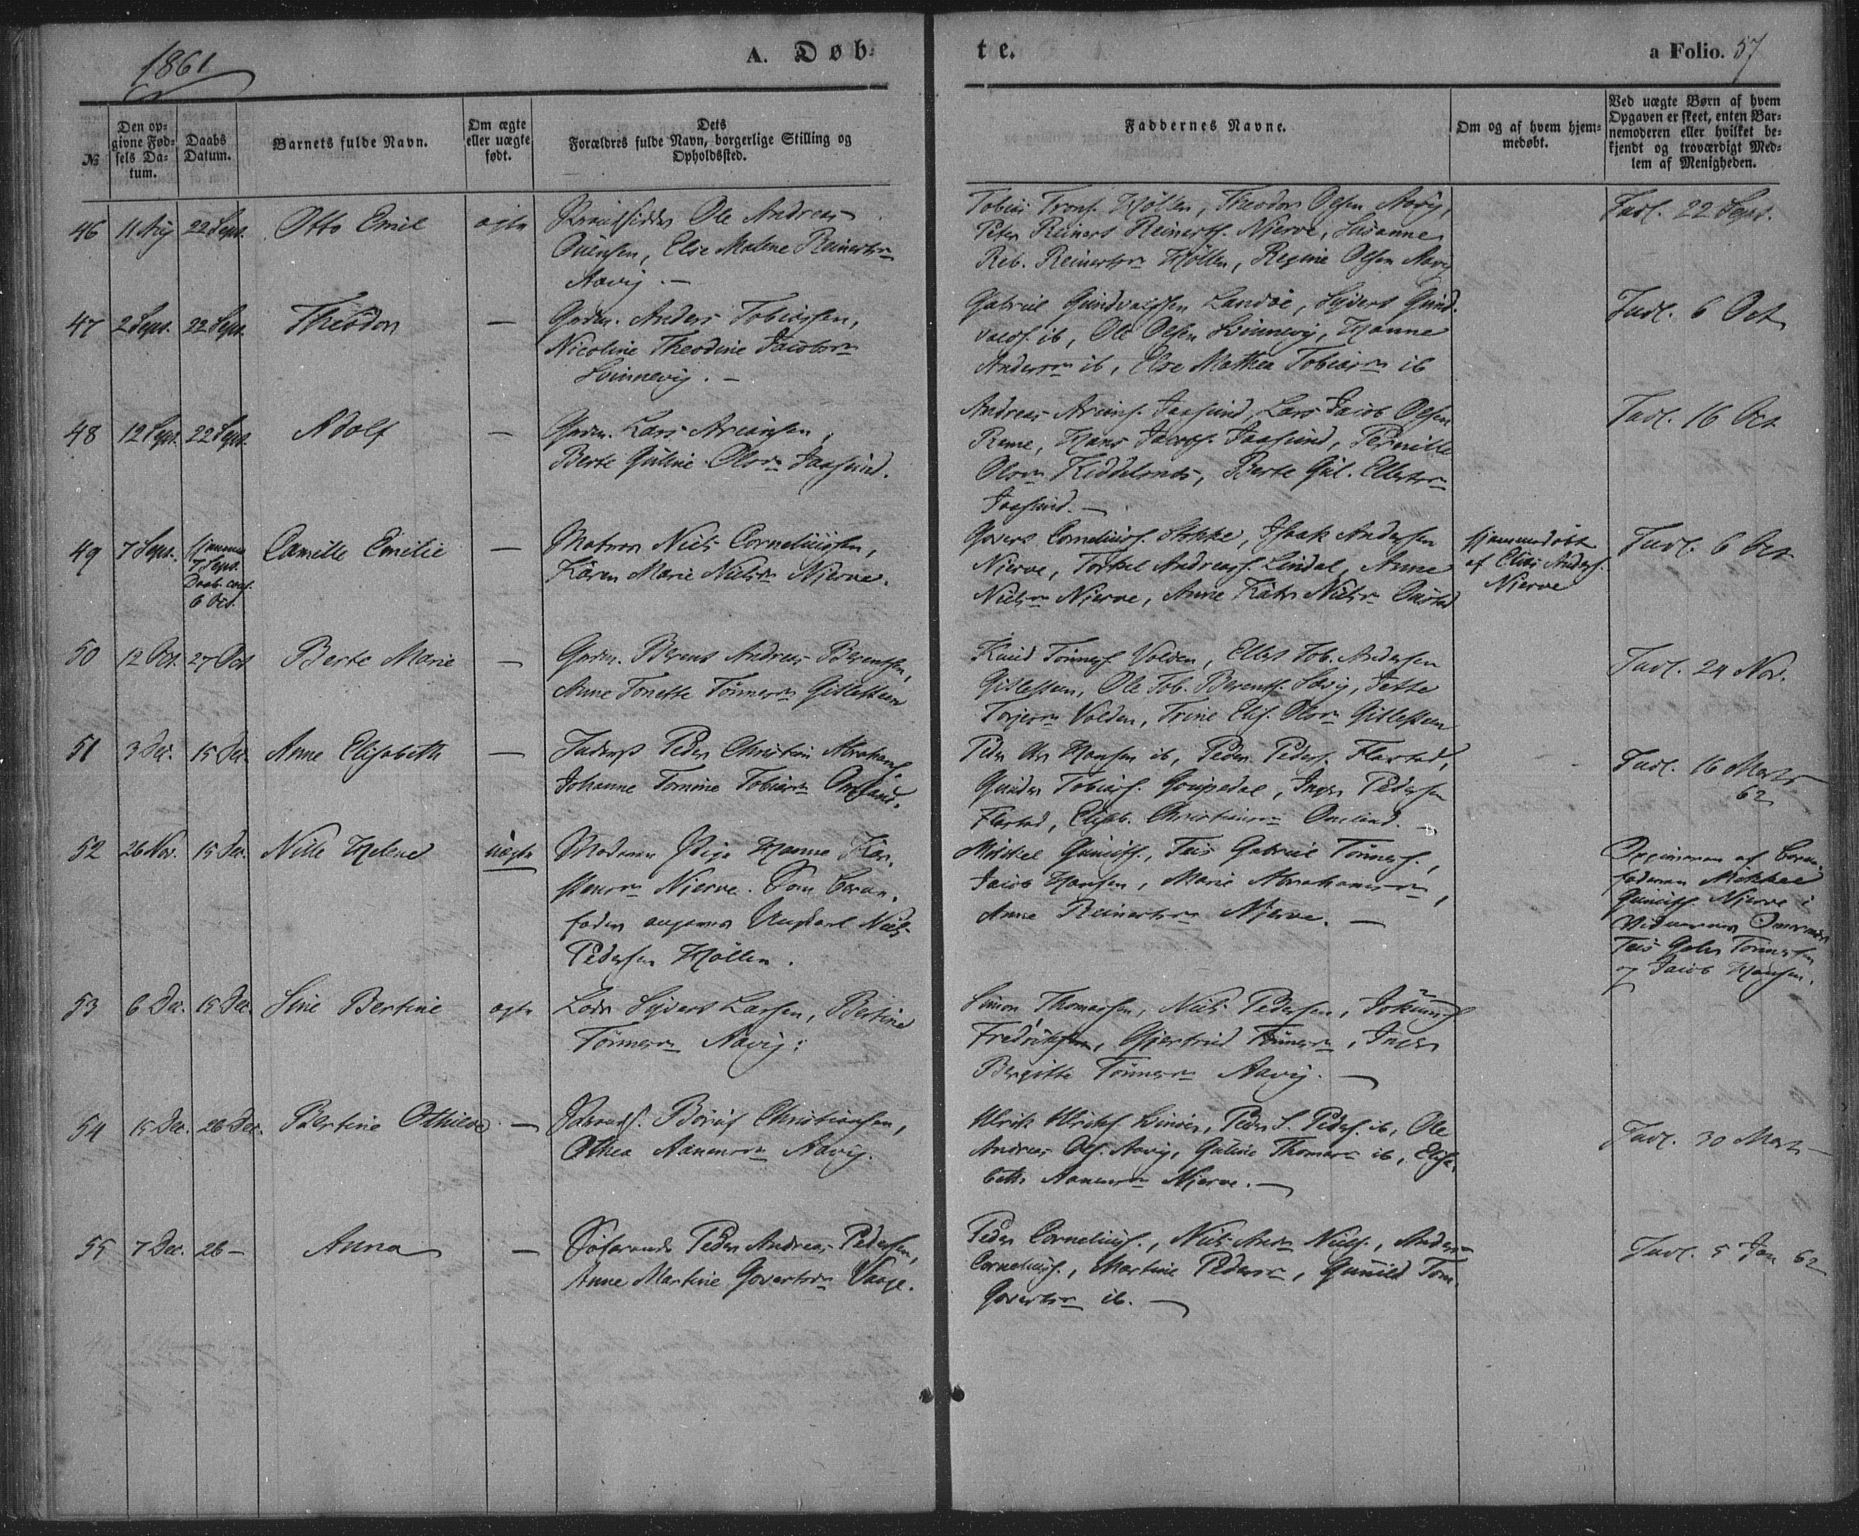 1861
A. Døb-
te.
a Folio. 57
№
Den op-
givne Fød-
sels Da-
tum.
Daabs
Datum.
Barnets fulde Navn.
Om ægte
eller uægte
født.
Dets
Forældres fulde Navn, borgerlige Stilling og
Opholdssted.
Faddernes Navne.
Om og af hvem hjem-
medøbt.
Ved uægte Børn af hvem
Opgaven er skeet, enten Bar-
nemoderen eller hvilket be-
kjendt og troværdigt Med-
lem af Menigheden.
46 11 Aug 22 Sept. Otto Emil ægte
Ole Andreas
Else Malene Reinertsn
Aavig. —
Tobias Møllen, Theodor Olsen Aavig,
Peter Reiners Reinerts. Njerve, Susanne
Reb. Reinertsn Møllen, Regine Olsen Aavig
Indl. 22 Sept.
47 2 Sept. 22 Sept. Theodor —
Gmdn. Anders Tobiassen,
Nicoline Theodine Jacobsn
Svinnevig. —
Gabriel Gundvaldsen Landøe, Syvert Gund-
valds. ib, Ole Olsen Svinnevig, Hanne
Andersn ib, Else Mathea Tobiasn ib
Indl. 6 Oct
48 12 Sept. 22 Sept. Adolf —
Gmdn. Lars Ariansen,
Berte Guline Olsn Jaasund.
Andreas Arians. Jaasund, Lars Jacob Olsen
Rene, Hans Jaasund, Pernille
Olsn Berte Gul. Ellertsn
Jaasund. —
Indl. 16 Oct
49 7 Sept. hjemme
7 Sept.
Daab conf.
6 Oct. Camilla Emilie —
Matros Niels Corneliussen,
Karen Marie Nielsn Njerve.
Govert Cornelius. Stokke, Isaak Andersen
Njerve, Torkel Andreas. Lindal, Anne
Nielsn Njerve, Anne Kath. Nielsn
hjemmedøbt
af Elias Anders.
Njerve
Indl. 6 Oct
50 12 Oct. 27 Oct Berte Marie —
Gmdn. Berent Andreas Berentsen,
Anne Tonette Tønnesn Gitlesteen
Knud Tønnes. Volden, Ellert Tob. Andersen
Gitlesteen, Ole Tob. Berents. Jette
Torjersn Volden, Trine Elis. Olsn Gitlesteen
Indl. 24 Nov.
51 3 Dec. 15 Dec. Anne Elisabeth —
Inderst Peder Christian Abrahams.
Johanne Tomine Tobiasn Omland.
Peder Chr Hansen ib, Peder Peders. Flastad,
Gunder Tobias. Inger Pedersen
Flastad, Elisab. Christiansn Omland. —
Indl. 16 Marts
62
52 26 Nov. 15 Dec. Nille Helene uægte
Moderen Pige Hanne Kar-
stensn Njerve. Som Barne-
fader angives Ungkarl Niels
Pedersen Møllen.
Mikkel Teis Gabriel Tønnes.,
Jacob Hansen, Marie Abrahamsn,
Anne Reinertsn Njerve. —
Opgiveren af Barne-
faderen Mikkel
Njerve i
Teis Gabr. Tønnesen
og Jacob Hansen.
53 6 Dec. 15 Dec. Sine Bertine ægte
Lods Syvert Larsen, Bertine
Tønnesn Aavig.
Simon Thomassen, Niels Pedersen, Jokum
Fredriksen, Gjertrud Tønnesn, Inger
Bergitte Tønnesn Aavig. —
54 15 Dec. 26 Dec. Bertine Othilde —
Børuf Christiansen,
Othea Aanensn Aavig.
Ulrik Ulriks. Peder S. Peders. ib, Ole
Andreas Ols. Aavig, Guline Thomasn ib, Elisa-
beth Aanensn Njerve. —
Indl. 30 Marts
55 7 Dec. 26 — Anna —
Søfarende Peder Andreas Pedersen,
Anne Martine Govertsn Vaage.
Peder Cornelius., Niels Andr. Niels., Anders
Cornelius., Martine Pedersn, Gunild Tom.
Govertsn ib. —
Indl. 5 Jan 62